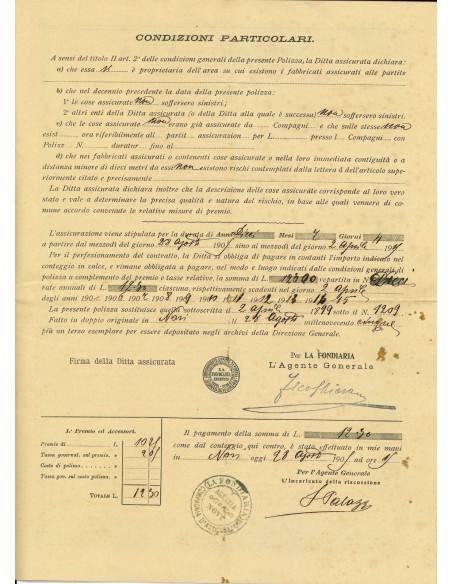 CONDIZIONI PARTICOLARI.
A sensi del titolo II art. 2º delle condizioni generali della presente Polizza, la Ditta assicurata dichiara:
a) che essa sì è proprietaria dell'area su cui esistono i fabbricati assicurati alle partite
b) che nel decennio precedente la data della presente polizza:
1º le cose assicurate non soffersero sinistri;
2º altri enti della Ditta assicurata (o della Ditta alla quale è successa) non soffersero sinistri.
c) che le cose assicurate non erano già assicurate da Compagni e che sulle stesse non
esist ora riferibilmente all partit assicurazion per L. presso l Compagni con
Polizz N. duratur fino al
d) che nei fabbricati assicurati o contenenti cose assicurate o nella loro immediata contiguità o a
distanza minore di dieci metri da essi non esistono rischi contemplati dalla lettera d dell'articolo superior-
mente citato e precisamente
La Ditta assicurata dichiara inoltre che la descrizione delle cose assicurate corrisponde al loro vero
stato e vale a determinare la precisa qualità e natura del rischio, in base alle quali vennero di co-
mune accordo convenute le relative misure di premio.
L'assicurazione viene stipulata per la durata di Anni Dieci Mesi 7 Giorni 4
a partire dal mezzodì del giorno 28 Agosto 1905 sino al mezzodì del giorno 2 Aprile
Per il perfezionamento del contratto, la Ditta si obbliga di pagare in contanti l'importo indicato nel
conteggio in calce, e rimane obbligata a pagare, nel modo e luogo indicati dalle condizioni generali di
polizza a complemento del premio e tasse relative, la somma di L. 123.00 ripartita in Dieci
rate annuali di L. 12.30 ciascuna, rispettivamente scadenti nel giorno 2 Aprile
degli anni 190 6 190 7 190 8 190 9 19 10 11 1912 1913 15
La presente polizza sostituisce quella sottoscritta il 2 Aprile 1899 sotto il N. 1209
Fatto in doppio originale in Novi il 28 Agosto millenovecento cinque
più un terzo esemplare per essere depositato negli archivi della Direzione Generale.
Firma della Ditta assicurata
LA FONDIARIA
Per LA FONDIARIA
L'Agente Generale
1.º Premio ed Accessori.
Premio di L. 10 25
Tassa governat. sul premio. » 2 05
Costo di polizza »
Tassa gov. sul costo polizza. »
TOTALE L. 12 30
Il pagamento della somma di L. 12.30
come dal conteggio qui contro, è stato effettuato in mie mani
in Novi oggi 28 Agosto 1905 ad ore
Per l'Agente Generale
L'Incaricato della riscossione
LA FONDIARIA